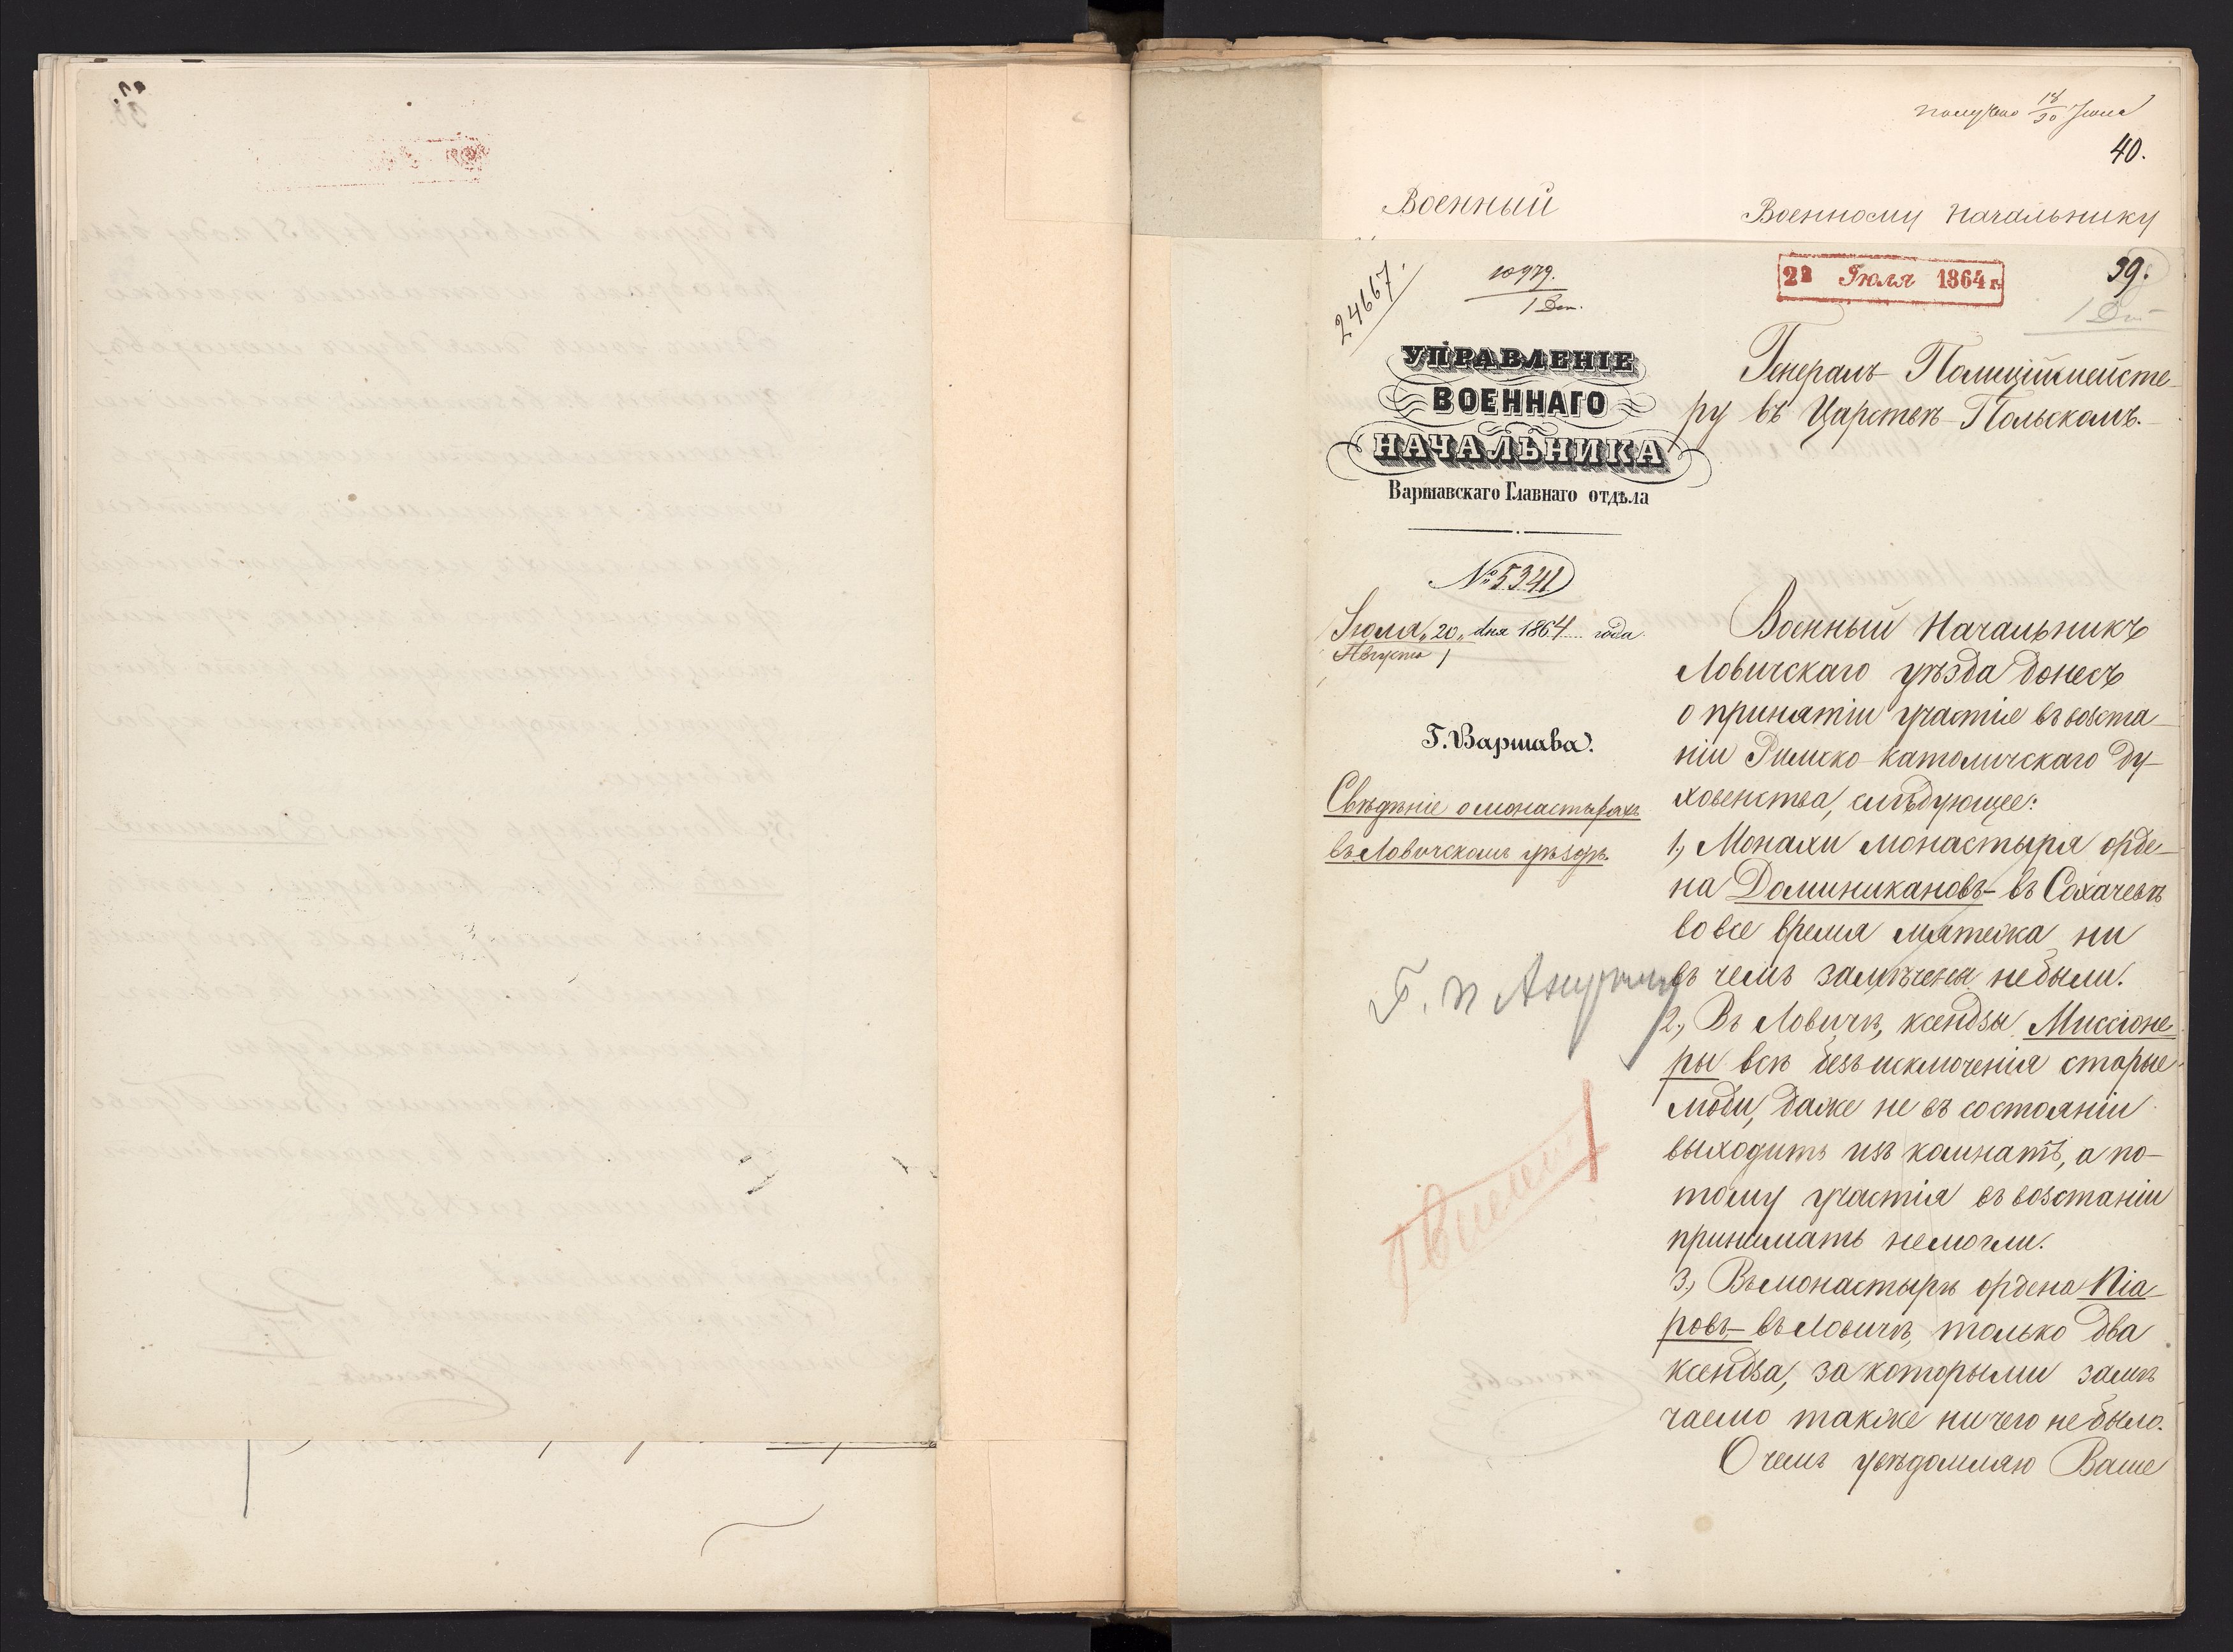 получено 18/30 Іюля
40.
Военный
Военному Начальнику
24667.
10979.
1 Деп.
22 Іюля 1864 г.
39.
УПРАВЛЕНІЕ
ВОЕННАГО
НАЧАЛЬНИКА
Варшавскаго Главнаго отдѣла
№ 5341
Іюля „20„ дня 1864 года
Августа 1
Г. Варшава.
Свѣдѣніе о монастыряхъ
въ Ловичскомъ уѣздѣ.
Генералъ-Полиціймейсте-
ру въ Царствѣ Польскомъ.
Военный Начальникъ
Ловичскаго уѣзда донесъ
о принятіи участіе въ возста-
ніи Римско-католическаго ду-
ховенства, слѣдующее:
1, Монахи монастыря орде-
на Доминикановъ- въ Сохачевѣ
во все время мятежа ни
въ чемъ замѣчены не были.
2, Въ Ловичѣ, ксендзы Миссіоне-
ры всѣ безъ исключенія старые
люди, даже не въ состояніи
выходить изъ комнатъ, а по-
тому участія въ возстаніи
принимать не могли.
3, Въ монастырѣ ордена Піа-
ровъ- въ Ловичѣ, только два
ксендза, за которыми замѣ
чаемо также ничего не было.
О чемъ увѣдомляю Ваше